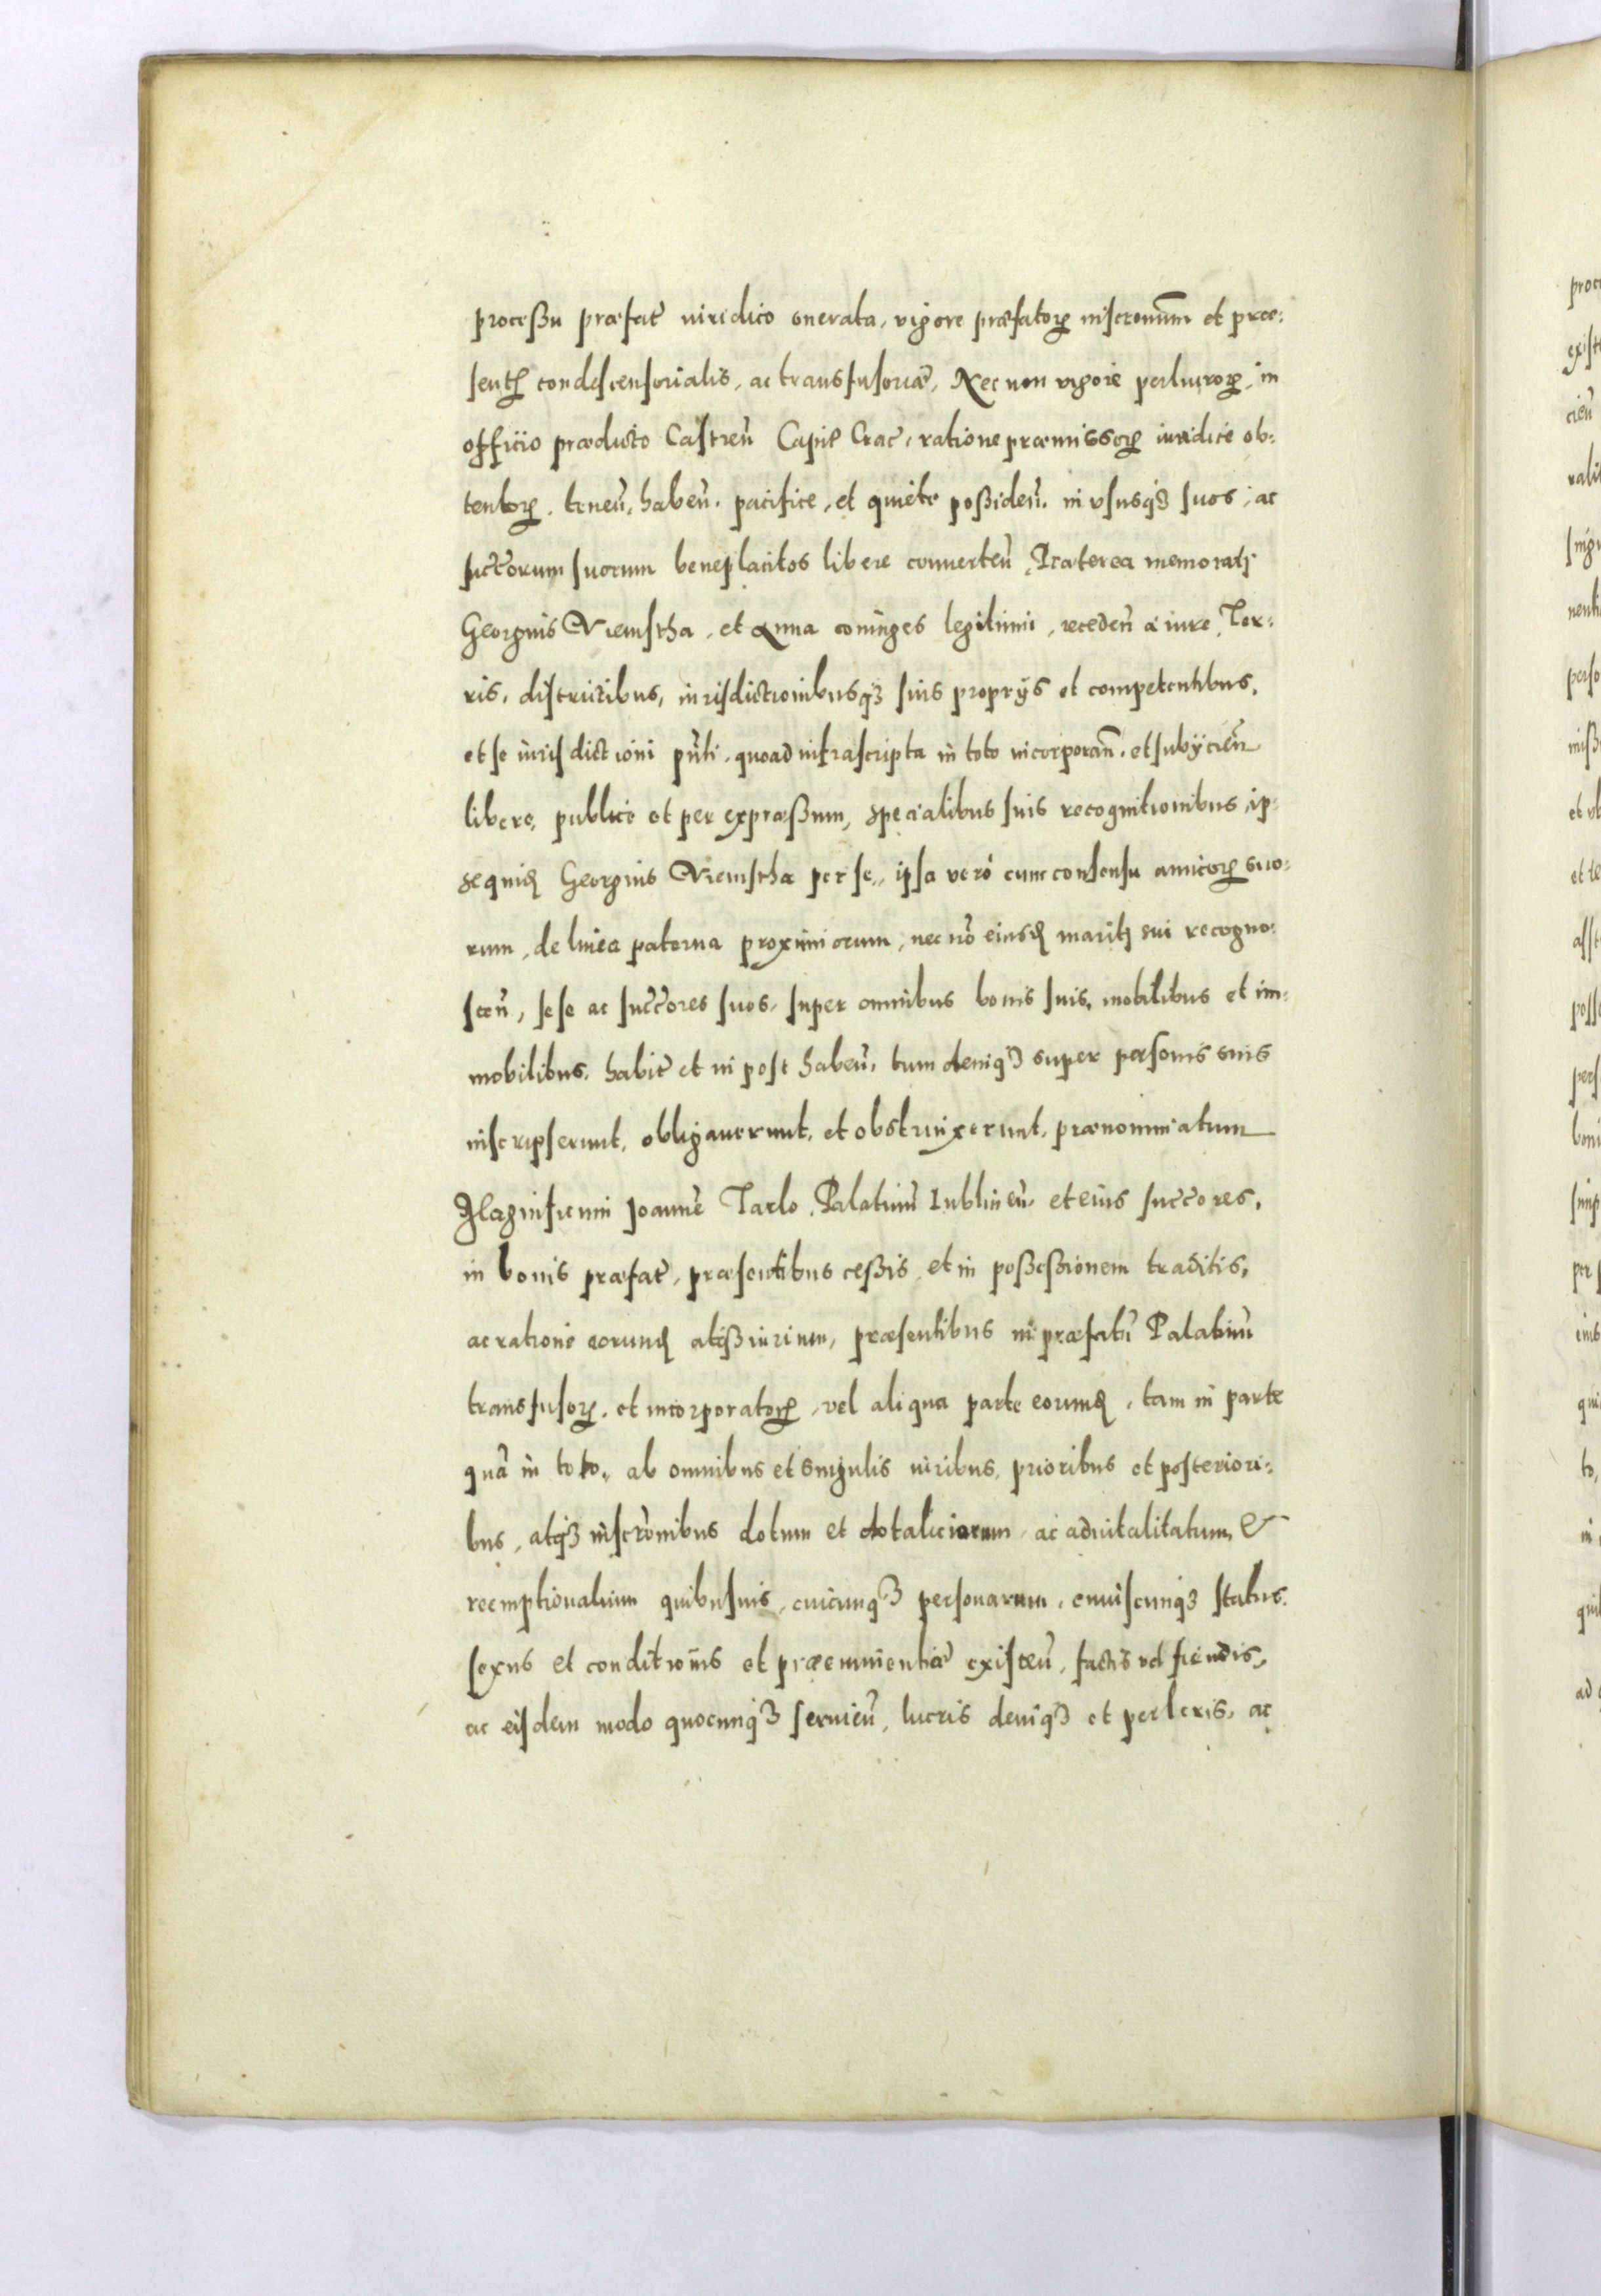 proceßu præfat̃ iuridico onerata, vigore præfatoꝝ inscrõnum et præ:
sentiũ condescensorialis, ac transfusoriæ, Nec non vigore perlucroꝝ, in
officio prædicto Castreñ Capit̃ Crac̃, ratione præmissoꝝ iuridice ob:
tentoꝝ, teneñ, habeñ, pacifice, et quiete poßideñ, in vsusqꝫ suos, ac
succ̃orum suorum beneplacitos libere conuerteñ, Præterea memoratj
Georgius Niemstha, et Anna coniuges legitimi, recedeñ a iure, Ter:
ris, districtibus, iurisdictionibusqꝫ suis proprijs et competentibus,
et se iurisdictioni pñti, quoad infrascripta in toto incorporañ, et subijcieñ
libere, publice et per expræßum, specialibus suis recognitionibus, ip:
se quidẽ Georgius Niemstha per se, ipsa vero cum consensu amicoꝝ suo:
rum, de linea paterna proximiorum, nec nõ eiusdẽ maritj sui recogno:
sceñ, sese ac succ̃ores suos, super omnibus bonis suis, mobilibus et im:
mobilibus, habit̃ et in post habeñ, tum deniqꝫ super personis suis
inscripserunt, obligauerunt, et obstrinxerunt, prænominatum
Magnificum Joannẽ Tarlo, Palatinũ Lublineñ, et eius succ̃ores,
in bonis præfat̃, præsentibus ceßis, et in poßeßionem traditis,
ac ratione eorundẽ atqꝫ iurium, præsentibus in præfatũ Palatinũ
transfusoꝝ, et incorporatoꝝ, vel aliqua parte eorundẽ, tam in parte
quã in toto, ab omnibus et singulis iuribus, prioribus et posteriori:
bus, atqꝫ inscrõnibus dotum et dotaliciorum, ac aduitalitatum, &
reemptionalium quibusuis, cuicunqꝫ personarum, cuiuscunqꝫ status
sexus et conditionis et præeminentiæ existeñ, factis vel fiendis,
ac eisdem modo quocunqꝫ seruieñ, lucris deniqꝫ et perlcris, ac